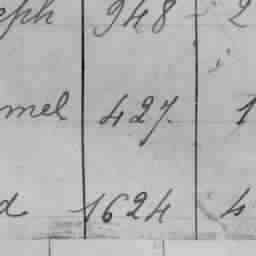 eph 948 2
mel 427. 1
d 1624 4